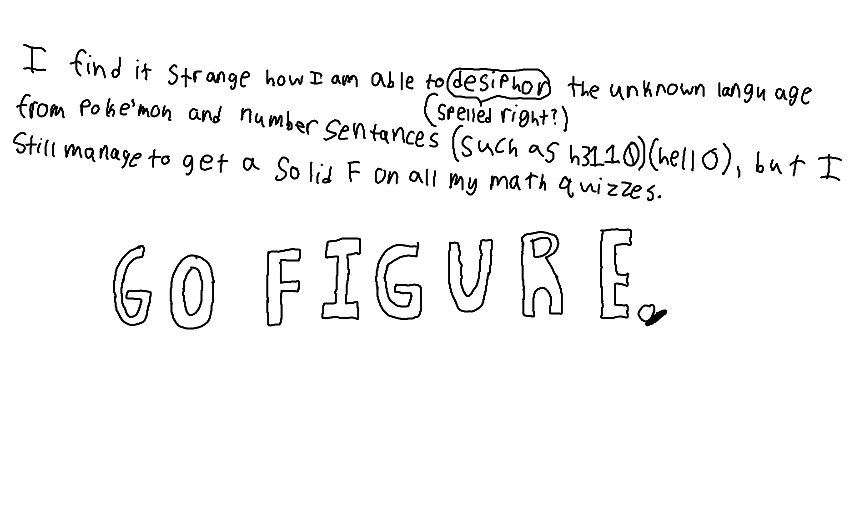 I find it strange how I am able to desiphor the unknown language
(spelled right?)
from Poke'mon and number sentances (such as h3110)(hello), but I
still manage to get a solid F on all my math quizzes.
GO FIGURE.